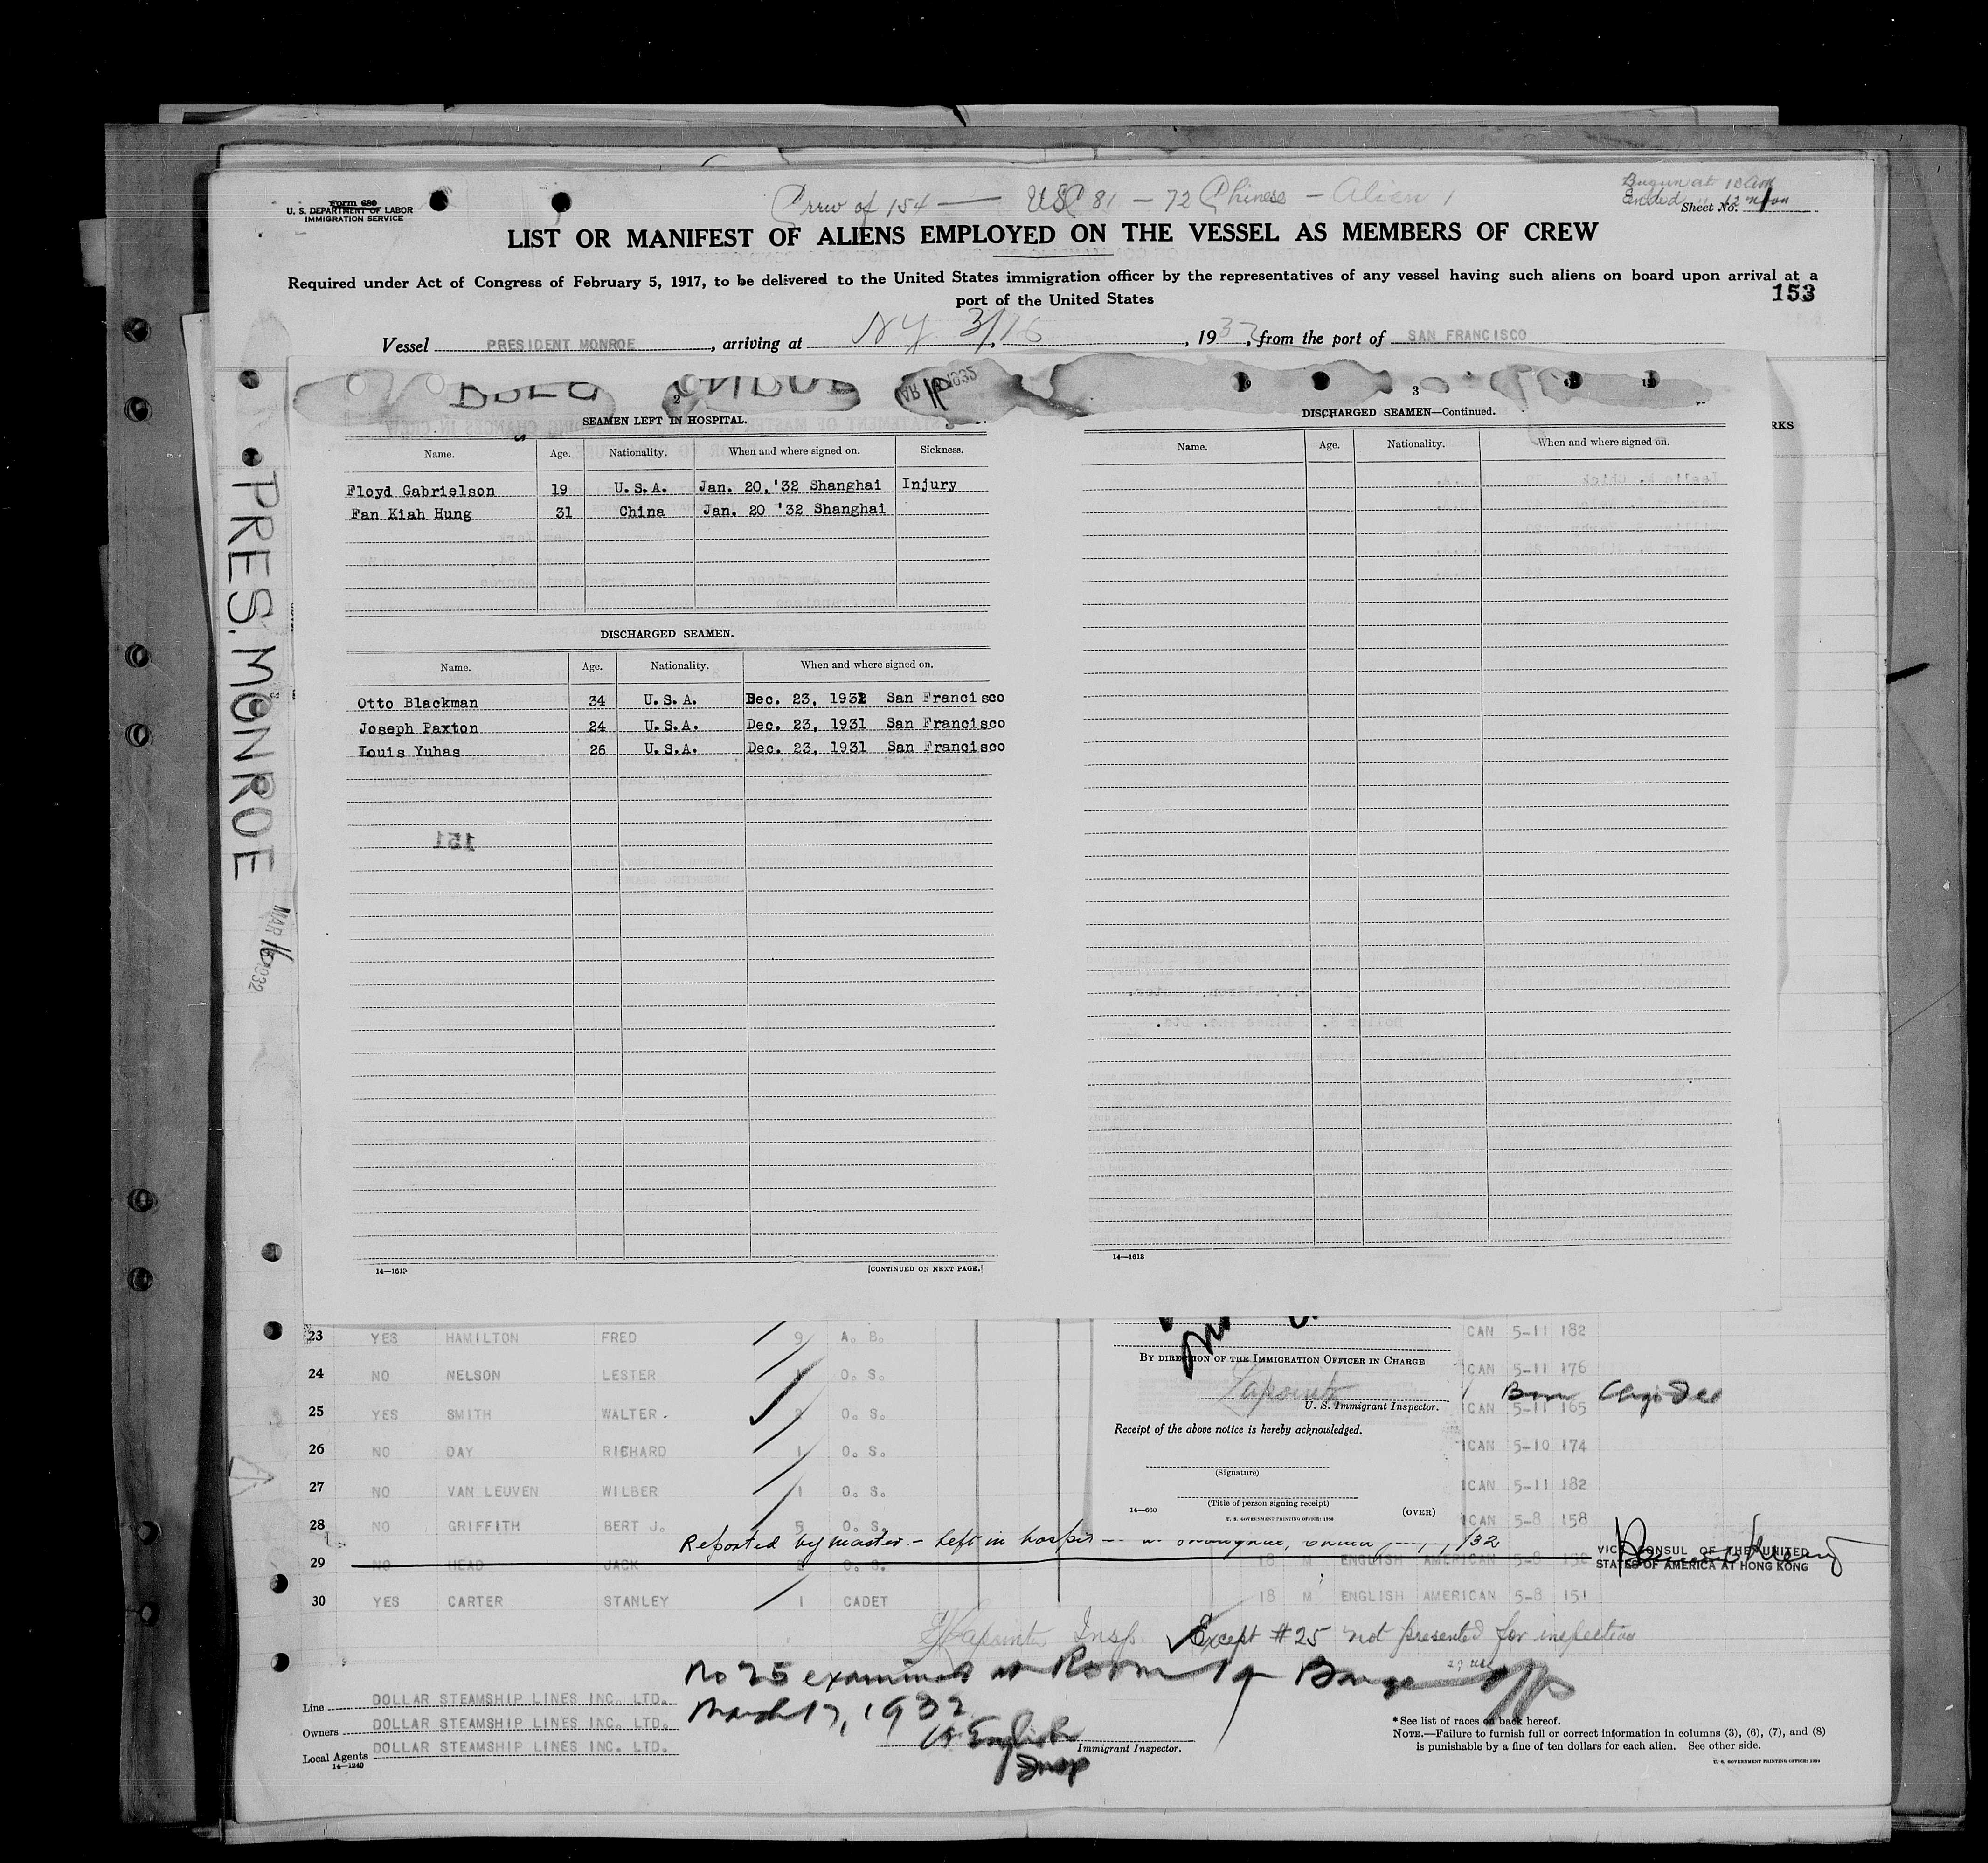 Form 680
U. S. DEPARTMENT OF LABOR
IMMIGRATION SERVICE
Crew of 154 — USC 81 — 72 Chinese — Alien 1
Begun at 10 AM
Ended 12 noon
Sheet No. 1
LIST OR MANIFEST OF ALIENS EMPLOYED ON THE VESSEL AS MEMBERS OF CREW
Required under Act of Congress of February 5, 1917, to be delivered to the United States immigration officer by the representatives of any vessel having such aliens on board upon arrival at a
port of the United States
153
Vessel PRESIDENT MONROE, arriving at NY 3/16, 1932, from the port of SAN FRANCISCO
PRES. MONROE
MAR 16 1932
2
SEAMEN LEFT IN HOSPITAL.
Name. Age. Nationality. When and where signed on. Sickness.
Floyd Gabrielson 19 U.S.A. Jan. 20,'32 Shanghai Injury
Fan Kiah Hung 31 China Jan. 20 '32 Shanghai
DISCHARGED SEAMEN.
Name. Age. Nationality. When and where signed on.
Otto Blackman 34 U.S.A. Dec. 23, 1931 San Francisco
Joseph Paxton 24 U.S.A. Dec. 23, 1931 San Francisco
Louis Yuhas 26 U.S.A. Dec. 23, 1931 San Francisco
151
14—1613
[CONTINUED ON NEXT PAGE.]
3
DISCHARGED SEAMEN—Continued.
Name. Age. Nationality. When and where signed on.
14—1613
RKS
23 YES HAMILTON FRED 9 A. B. ICAN 5-11 182
24 NO NELSON LESTER O. S. ICAN 5-11 176
25 YES SMITH WALTER. 2 O. S. ICAN 5-11 165
26 NO DAY RICHARD 1 O. S. ICAN 5-10 174
27 NO VAN LEUVEN WILBER 1 O. S. ICAN 5-11 182
28 NO GRIFFITH BERT J. 5 O. S. ICAN 5-8 158
Reported by master - Left in hospit /32
29 NO HEAD JACK 2 O. S. 18 M ENGLISH AMERICAN 5-8 152
30 YES CARTER STANLEY 1 CADET 18 M ENGLISH AMERICAN 5-8 151
BY DIRECTION OF THE IMMIGRATION OFFICER IN CHARGE
Lapointe
U. S. Immigrant Inspector.
Receipt of the above notice is hereby acknowledged.
(Signature)
(Title of person signing receipt)
14—660
(OVER)
U. S. GOVERNMENT PRINTING OFFICE: 1930
Born
VICE CONSUL OF THE UNITED
STATES OF AMERICA AT HONG KONG
Lapointe Insp. Except #25 not presented for inspection
No 25 examined at Room Barge Off
March 17, 1932
English
Insp
Immigrant Inspector.
Line DOLLAR STEAMSHIP LINES INC. LTD.
Owners DOLLAR STEAMSHIP LINES INC. LTD.
Local Agents DOLLAR STEAMSHIP LINES INC. LTD.
14—1240
*See list of races on back hereof.
NOTE.—Failure to furnish full or correct information in columns (3), (6), (7), and (8)
is punishable by a fine of ten dollars for each alien. See other side.
U. S. GOVERNMENT PRINTING OFFICE: 1930